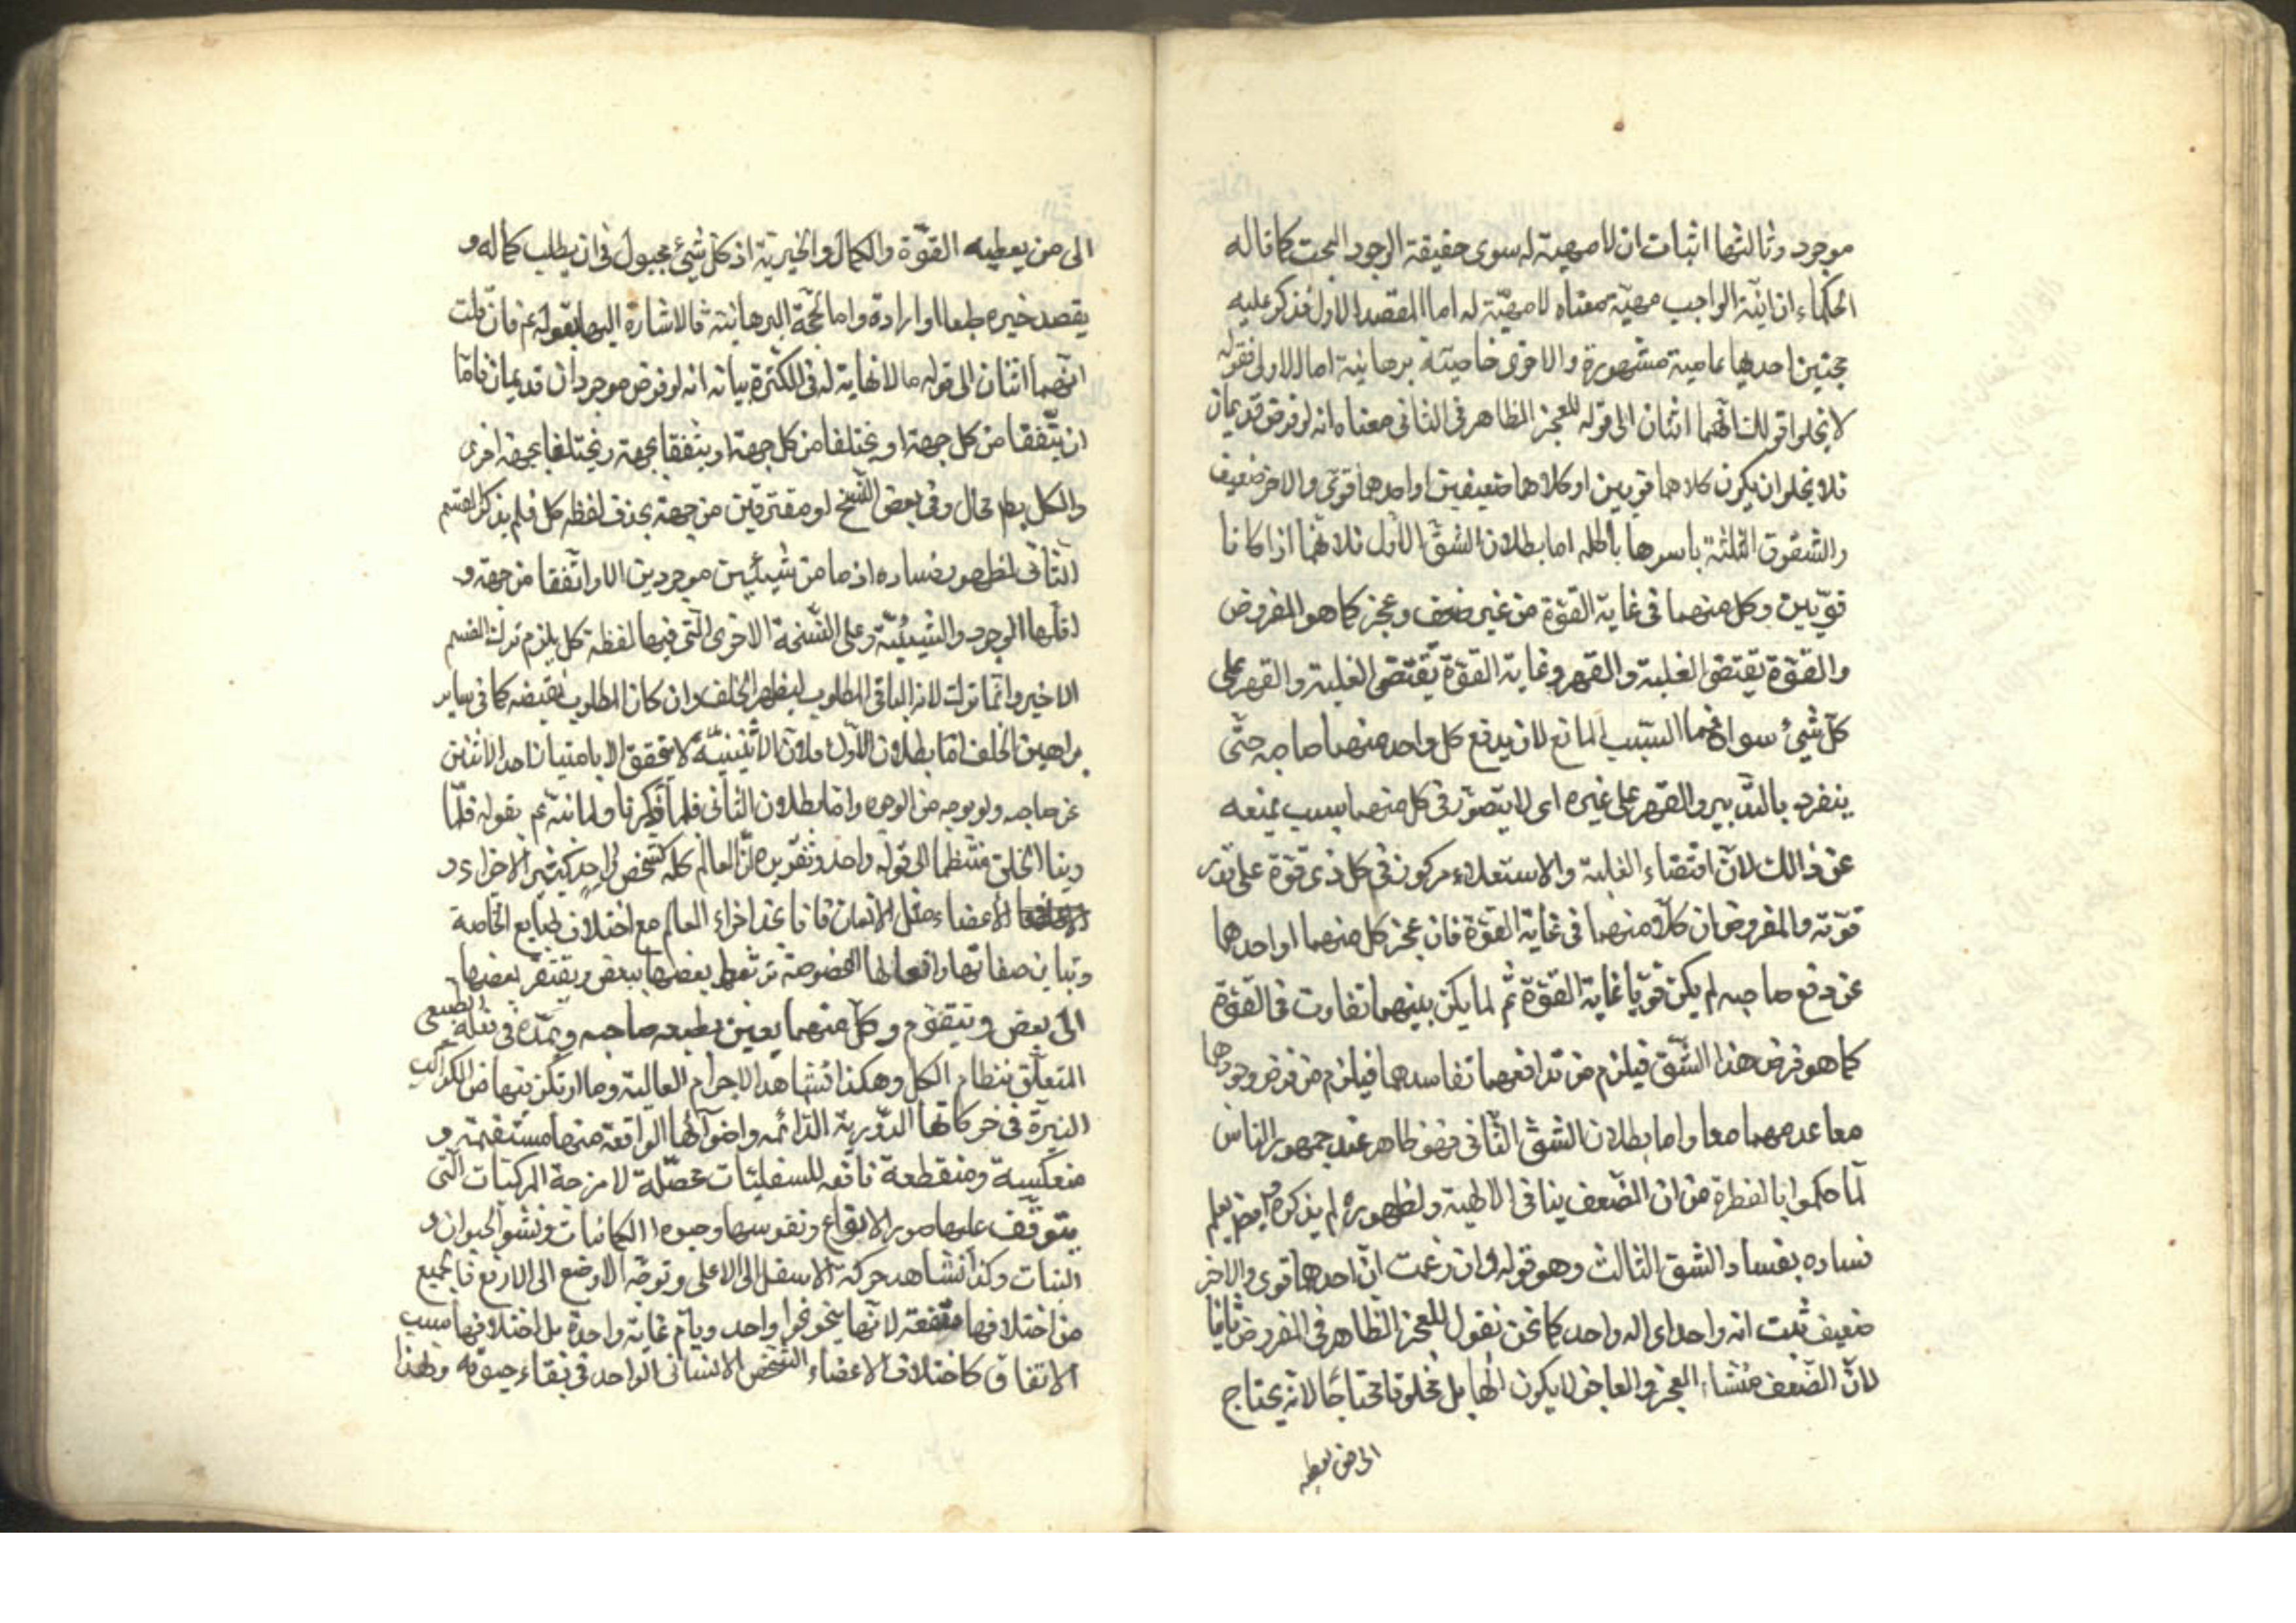 موجود وثالثها اثبات ان لا مهية له سوى حقيقة الوجود البحت كما قاله
الحكماء ان انية الواجب مهيته بمعناه لا مهيّة له اما المقصد الاول فذكر عليه
حجتين احديها عامية مشهورة والاخرى خاصيّة برهانية اما الاولى فقوله
لا يخلوا قولك انهما اثنان الى قوله للعجز الظاهر فى الثانى معناه انه لو فرض قديمان
فلا يخلو ان يكون كلاهما قويين او كلاهما ضعيفين او احدهما قوّى والاخر ضعيف
والشقوق الثلثة باسرها باطله اما بطلان الشق الاول فلانهما اذا كانا
قويّين وكل منهما فى غاية القوّة من غير ضعف وعجز كما هو المفروض
والقوّة يقتضى الغلبة والقهر وغاية القوّة تقتضى الغلبة والقهر على
كل شئ سواه فما السبب المانع لان يدفع كل واحد منهما صاحبه حتّى
ينفرد بالتدبير والقهر على غيره اى لا يتصوّر فى كل منهما بسبب يمنعه
عن ذالك لانّ اقتضاء الغلبة والاستعلاء مركوز فى كل ذى قوّة على قدر
قوّته والمفروض ان كلا منهما فى غاية القوّة فان عجز كل منهما او احدهما
عن دفع صاحبه لم يكن قويّا غاية القوّة ثم لما يكن بينهما تفاوت فى القوّة
كما هو فرض هذا الشّق فيلزم من تدافعهما تفاسدهما فيلزم من فرض وجودهما
معا عدمهما معا واما بطلان الشق الثّانى فهو ظاهر عند جمهور الناس
لما حكموا بالفطرة من ان الضّعف ينافى الالهية ولظهوره لم يذكره وايضا يعلم
فساده بفساد الشق الثالث وهو قوله وان زعمت انّ احدهما قوى والاخر
ضعيف ثبت انه واحد اى اله واحد كما نحن نقول للعجز الظاهر فى المفروض ثانيا
لانّ الضّعف منشاء العجز والعاجز لا يكون الٰها بل مخلوقا محتاجا لانه يحتاج
الى من يعطيه
الى من يعطيه القوّة والكمال والخيرية اذ كل شئ مجبول فى ان يطلب كماله و
يقصد خيره طبعا او ارادة واما الحجّة البرهانيّة فالاشارة اليها بقوله عم فان قلت
انهما اثنان الى قوله مالا نهاية له فى الكثرة بيانه انه لو فرض موجودان قديمان فامّا
ان يتّفقا من كل جهة او يختلفا من كل جهة او يتفقا بجهة ويختلفا بجهة اخرى
والكل محال وفى بعض النسخ او مفترقين من جهة بحذف لفظه كل فلم يذكر القسم
الثانى لظهور فساده اذ ما من شيئين موجودين الا واتّفقا من جهة و
اقلّها الوجود والشيئيّة وعلى النسخة الاخرى التى فيها لفظة كل يلزم ترك القسم
الاخير وانما ترك لانه الباقى المطلوب ليظهر الخلف وان كان المطلوب نقيضه كما فى ساير
براهين الخلف امّا بطلان الاوّل فلانّ الاثنينيّة لا يتحقق الا بامتياز احد الاثنين
عن صاحبه ولو بوجه من الوجوه واما بطلان الثانى فلما ذكرنا ولما نبّه عم بقوله فلمّا
راينا الخلق منتظما الى قوله واحد وتقريره انّ العالم كله كشخص واحد كثير الاجزاء و
الاعضاء مثل الانسان فانا نجد اجزاء العالم مع اختلاف طبايع الخاصة
وتباين صفاتها وافعالها المخصوصة يرتبط بعضها ببعض ويفتقر بعضها
الى بعض وتيقوم وكلّ منهما يعين بطبعه صاحبه ويمدّه فى فعله الطبيعى
المتعلّق بنظام الكل وهكذا نشاهد الاجرام العالية وما ارتكز فيها من الكواكب
النيرة فى حركاتها الدّورية الدّائمه واضوائها الواقعة منها مستقيمة و
منعكسة ومنقطعة نافعه للسفليات محصّلة لامزجة المركبات الّتى
يتوقّف عليها صور الانواع ونفوسها وجوه الكاينات ونشو الحيوان و
النبات وكذا نشاهد حركة الاسفل الى الاعلى وتوجّه الاوضع الى الارفع فالجميع
من اختلافها متّفقة لانّها ينحو نحوا واحد ويامّ غاية واحدة بل اختلافها سبب
الاتفاق كاختلاف الاعضاء الشخص الانسانى الواحد فى بقاء حيوته ولهذا